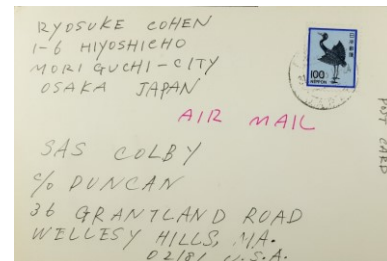 RYOSUKE COHEN
1-6 HIYOSHICHO
MORIGUCHI-CITY
OSAKA JAPAN
100
NIPPON
AIR MAIL
POST CARD
SAS COLBY
c/o DUNCAN
36 GRANTLAND ROAD
WELLESY HILLS, MA.
02181 U.S.A.